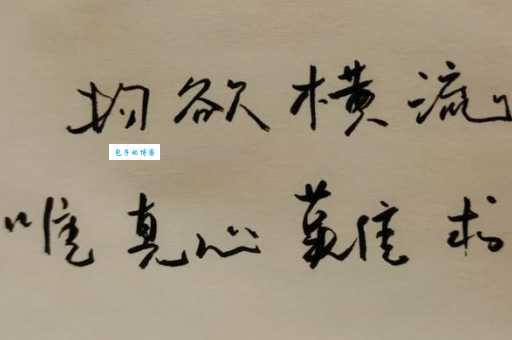 物欲横流
包子的博客
唯真心難求